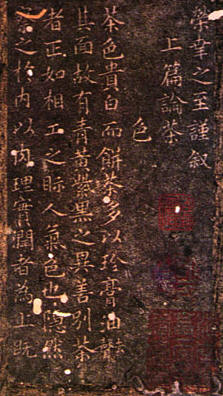 榮幸之至謹叙
上篇論茶
色
茶色貴白而餅茶多以珍膏油去聲
其面故有青黃紫黑之異善別茶
者正如相工之眎人氣色也隱然
察之於內以肉理實潤者為上既